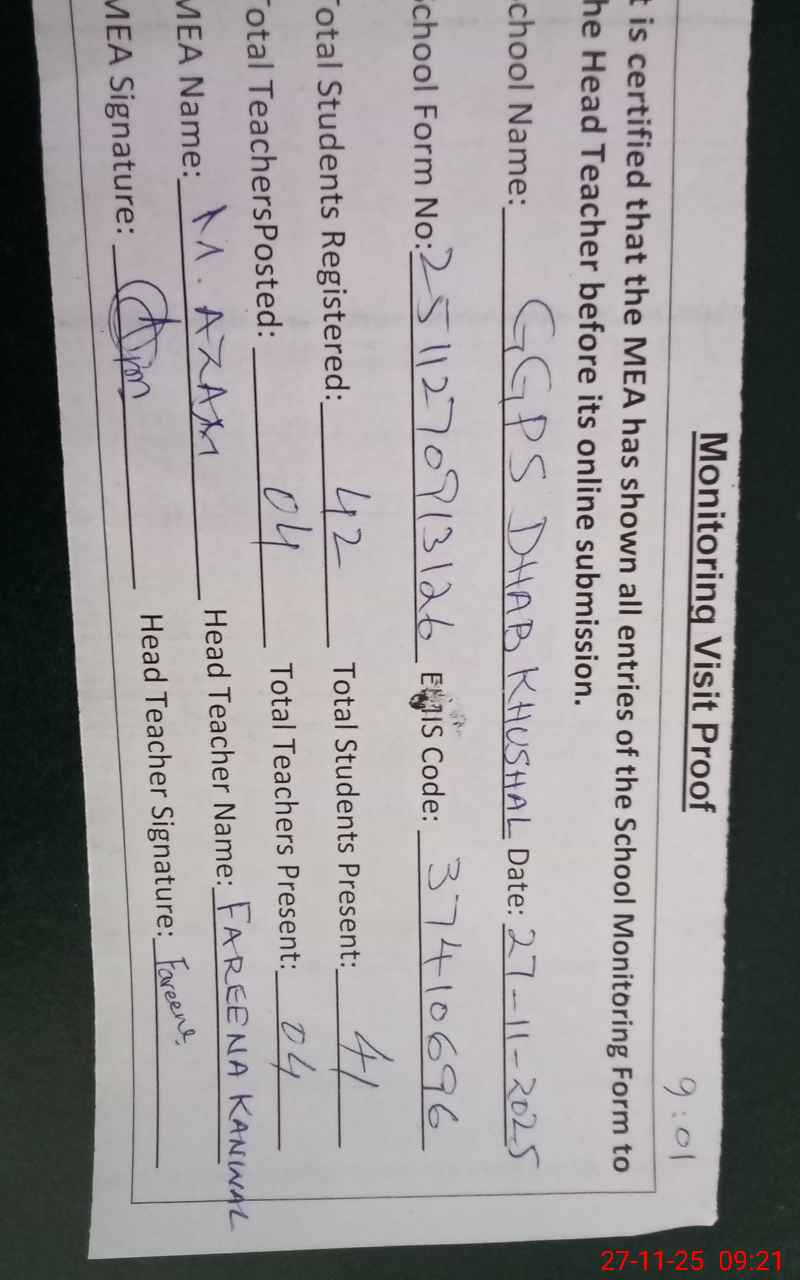 9:01
Monitoring Visit Proof
t is certified that the MEA has shown all entries of the School Monitoring Form to
he Head Teacher before its online submission.
chool Name: GGPS DHAB KHUSHAL Date: 27-11-2025
chool Form No: 2511270913126 EMIS Code: 37410696
otal Students Registered: 42 Total Students Present: 41
otal TeachersPosted: 04 Total Teachers Present: 04
MEA Name: M. AZAM Head Teacher Name: FAREENA KANWAL
MEA Signature: Head Teacher Signature: Fareena
27-11-25 09:21